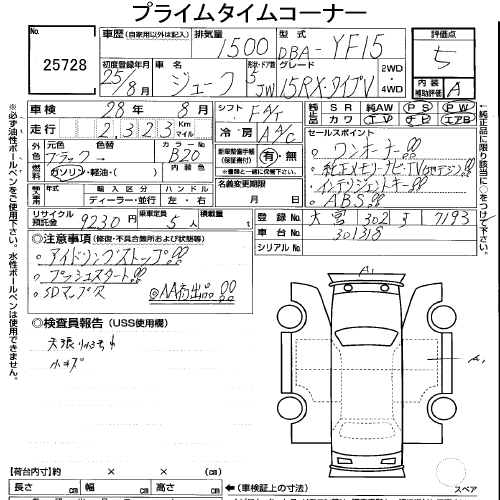 プライムタイムコーナー
No.
25728
車歴 (自家用以外は記入)
排気量 1500
型式 DBA-YF15
評価点 5
初度登録年月 25/8月
車名 ジューク
形状・ドア数 5 JW
グレード 15RX・タイプV
2WD
4WD
内装補助評価 A
車検 28年 8月
シフト FAT
純正品 SR 純AW PS PW
革 カワ TV ナビ エアB
走行 2,323 Km マイル
冷房 AAC
セールスポイント
外色 元色 ブラック 色替 カラーNo B20
新車整備手帳(保証書付) 有・無
※書類と一緒に保管下さい
。ワンオーナー
。純正メモリーナビ・TV
。インテリジェントキー
。ABS
燃料 ガソリン・軽油・( )
名義変更期限 月 日
輸入車 年式 年 輸入区分 ディーラー・並行 ハンドル 左・右
リサイクル預託金 9230円 乗車定員 5人 積載数量 t
登録No 大宮 302 す 7193
車台No 301318
シリアルNo
◎注意事項 (修復・不具合箇所および状態等)
。アイドリングストップ
。プッシュスタート
。SDマップ ◎AA初出品
◎検査員報告 (USS使用欄)
天張り
小キズ
A1
A1
スペア
【荷台内寸】約 × × (cm)
長さ cm 幅 cm 高さ cm
←(車検証上の寸法)
※必ず油性ボールペンをご使用下さい。水性ボールペンは使用できません。
↑純正品に限る○をつけて下さい。